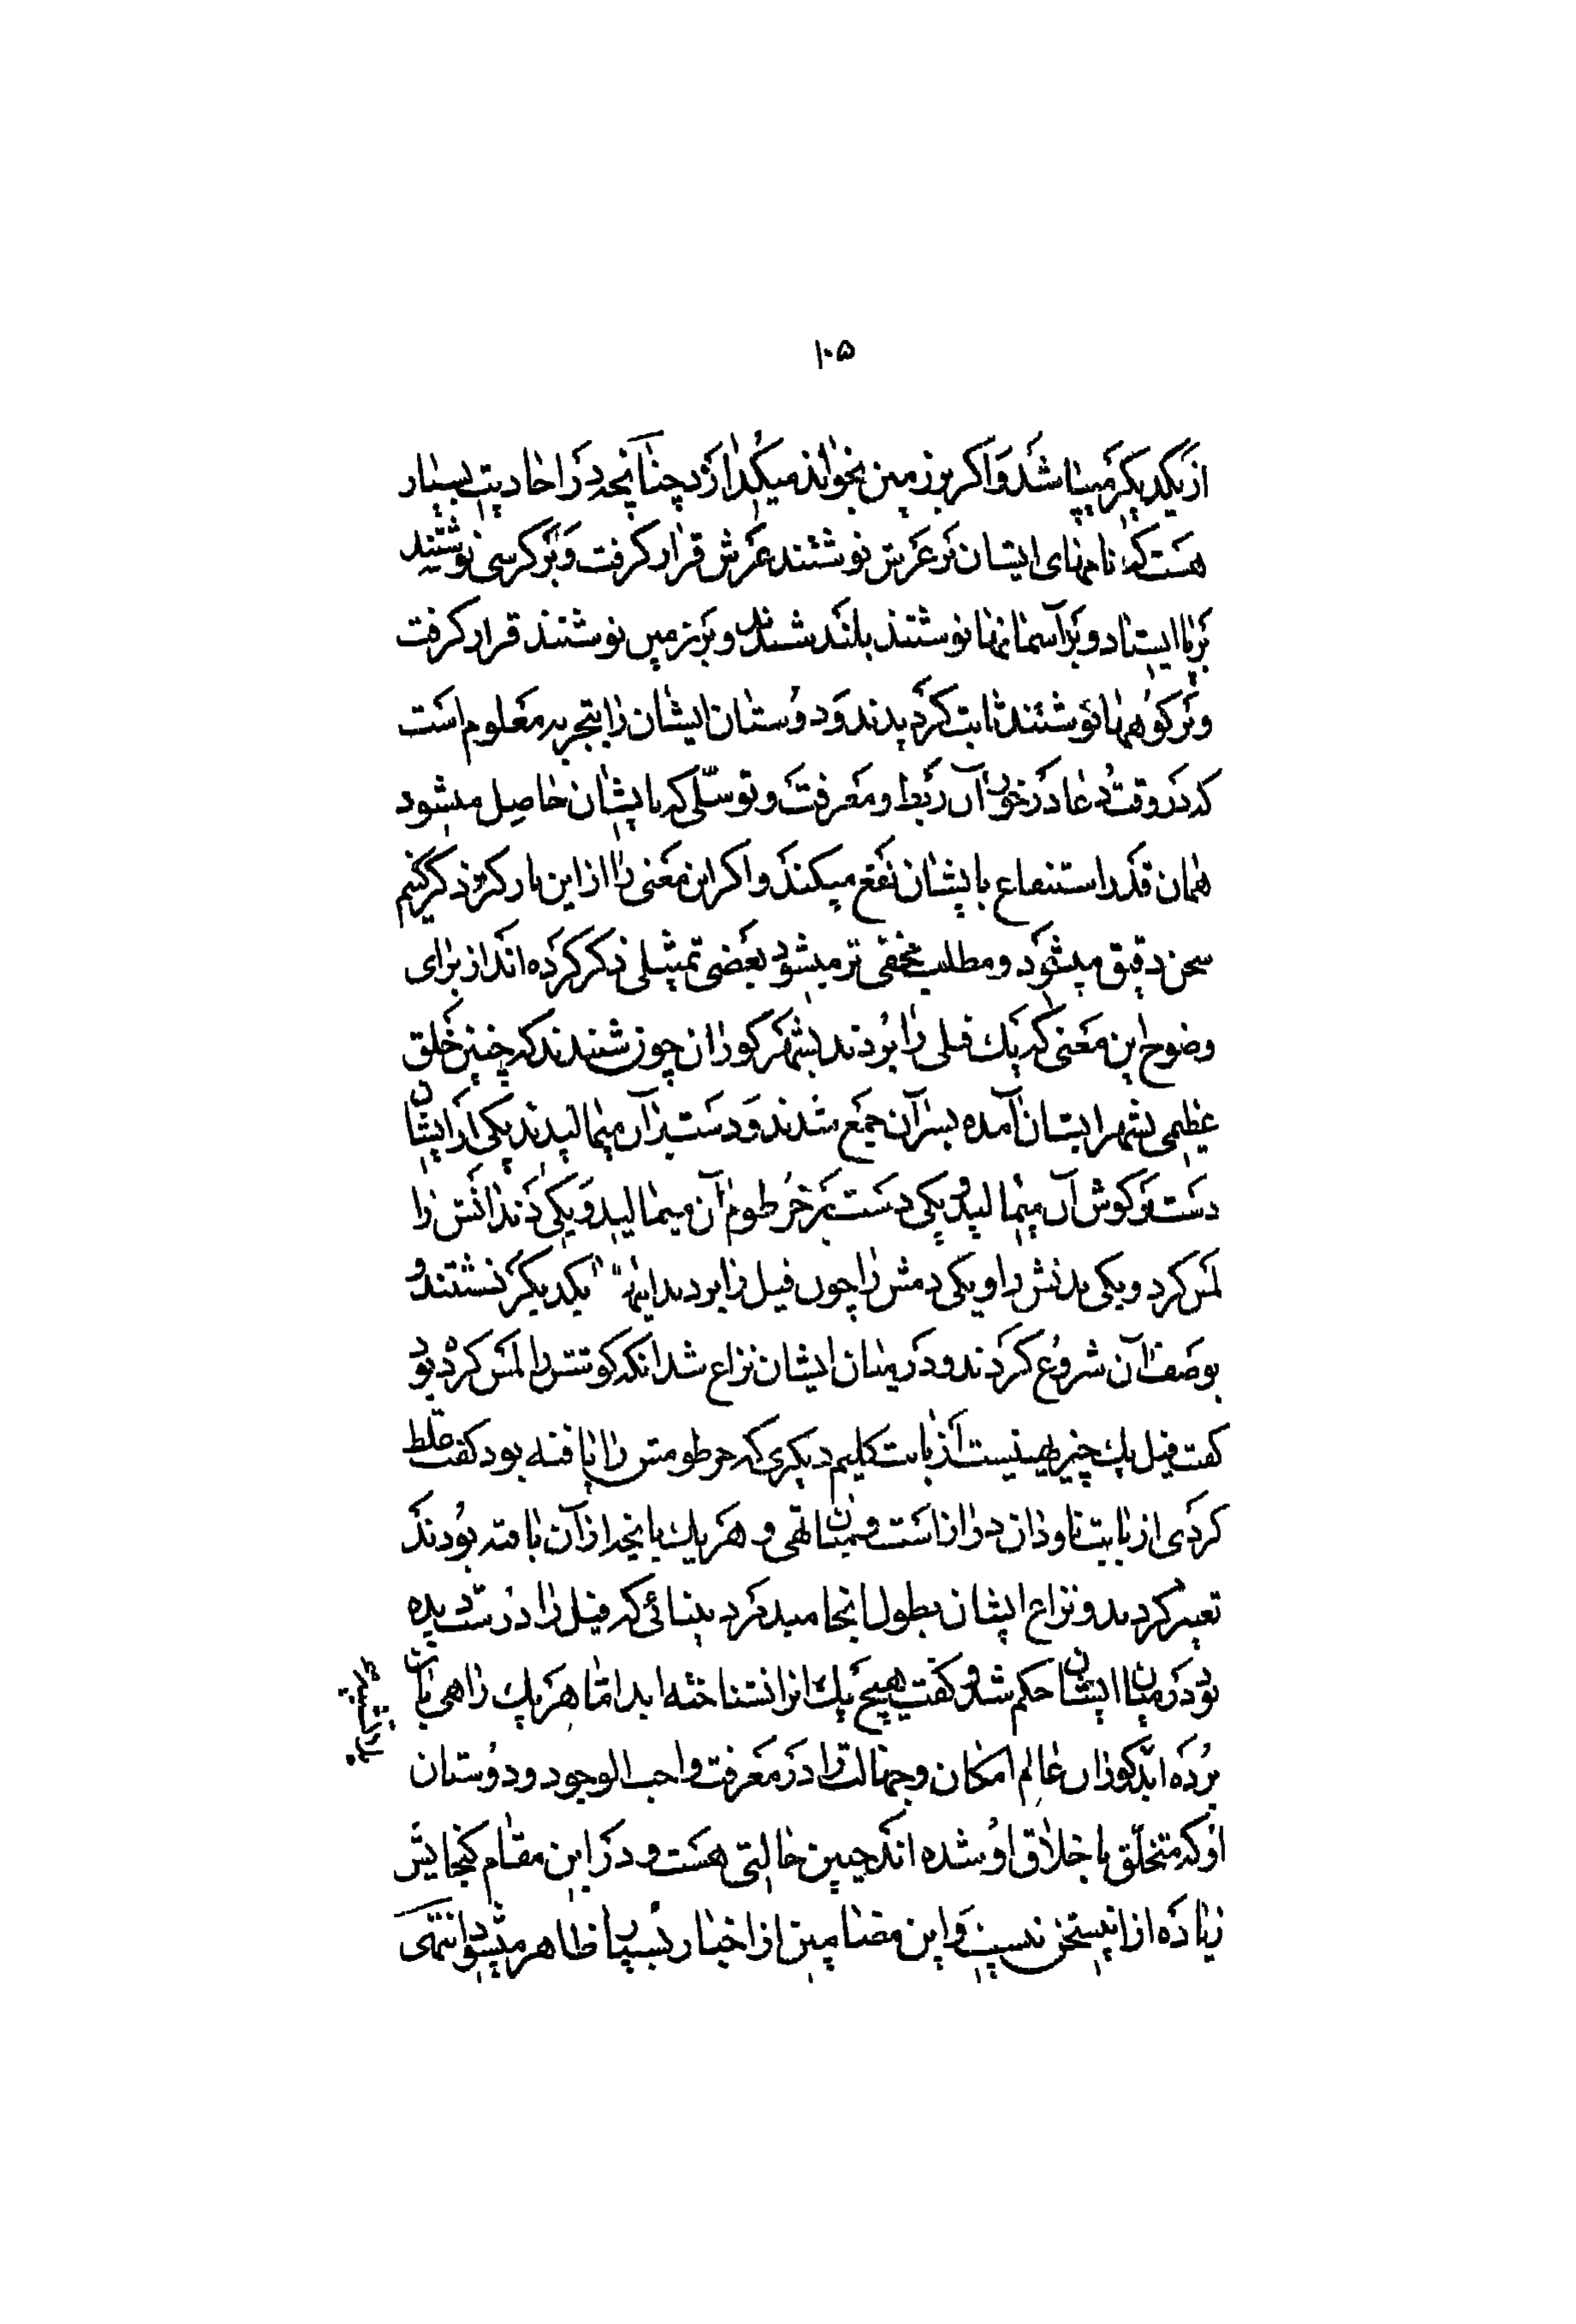 ۱۰۵
از یکدیگر میپاشد و اکر بر زمین بخواند میکدازد چنانچه در احادیث بسیار
هست که نامهای ایشان بر عرش نوشتند عرش قرار کرفت و بر کرسی نوشتند
بر پا ایستاد و بر آسمانها نوشتند بلند شدند و بر زمین نوشتند قرار کرفت
و بر کوهها نوشتند ثابت کردیدند و دوستان ایشان را بتجربه معلوم است
که در وقت دعا در خور آن ربط و معرفت و توسلی که بایشان حاصل میشود
همان قدر استنفاع بایشان نفع میکند و اکر این معنی را از این بارکتر ذکر کنیم
سخن دقیق میشود و مطلب مخفی تر میشود بعضی تمثیلی ذکر کرده اند از برای
وضوح این معنی که یک فیلی را بردند بشهر کوران چون شنیدند که چنین خلق
عظیمی بشهر ایشان آمده بسر آن جمع شدند و دست بر آن میمالیدند یکی از ایشان
دست بر کوش آن میمالید و یکی دست بر خرطوم آن میمالید و یکی دندانش را
لمس کرد و یکی بدنش را و یکی دمش را چون فیل را بردند اینها با یکدیگر نشستند و
بوصف آن شروع کردند و در میان ایشان نزاع شد انکه کوشش را لمس کرده بود
کفت فیل یک چیز پهنیست از بابت کلیم دیکری که خرطومش را یافته بود کفت غلط
کردی از بابت ناودان دراز است و میان تهی و هر یک بانچه از آن یافته بودند
تعبیر کردند و نزاع ایشان بطول انجامید مرد بینائی که فیل را درست دیده
بود در میان ایشان حکم شد و کفت هیچ یک انرا نشناخته اید اما هر یک راهی بان
برده اید کوران عالم امکان و جهالت را در معرفت واجب الوجود و دوستان
او که متخلق باخلاق او شده اند چنین حالتی هست و در این مقام کنجایش
زیاده از این سخن نیست و این مضامین از اخبار بسیار ظاهر میشود انتهی